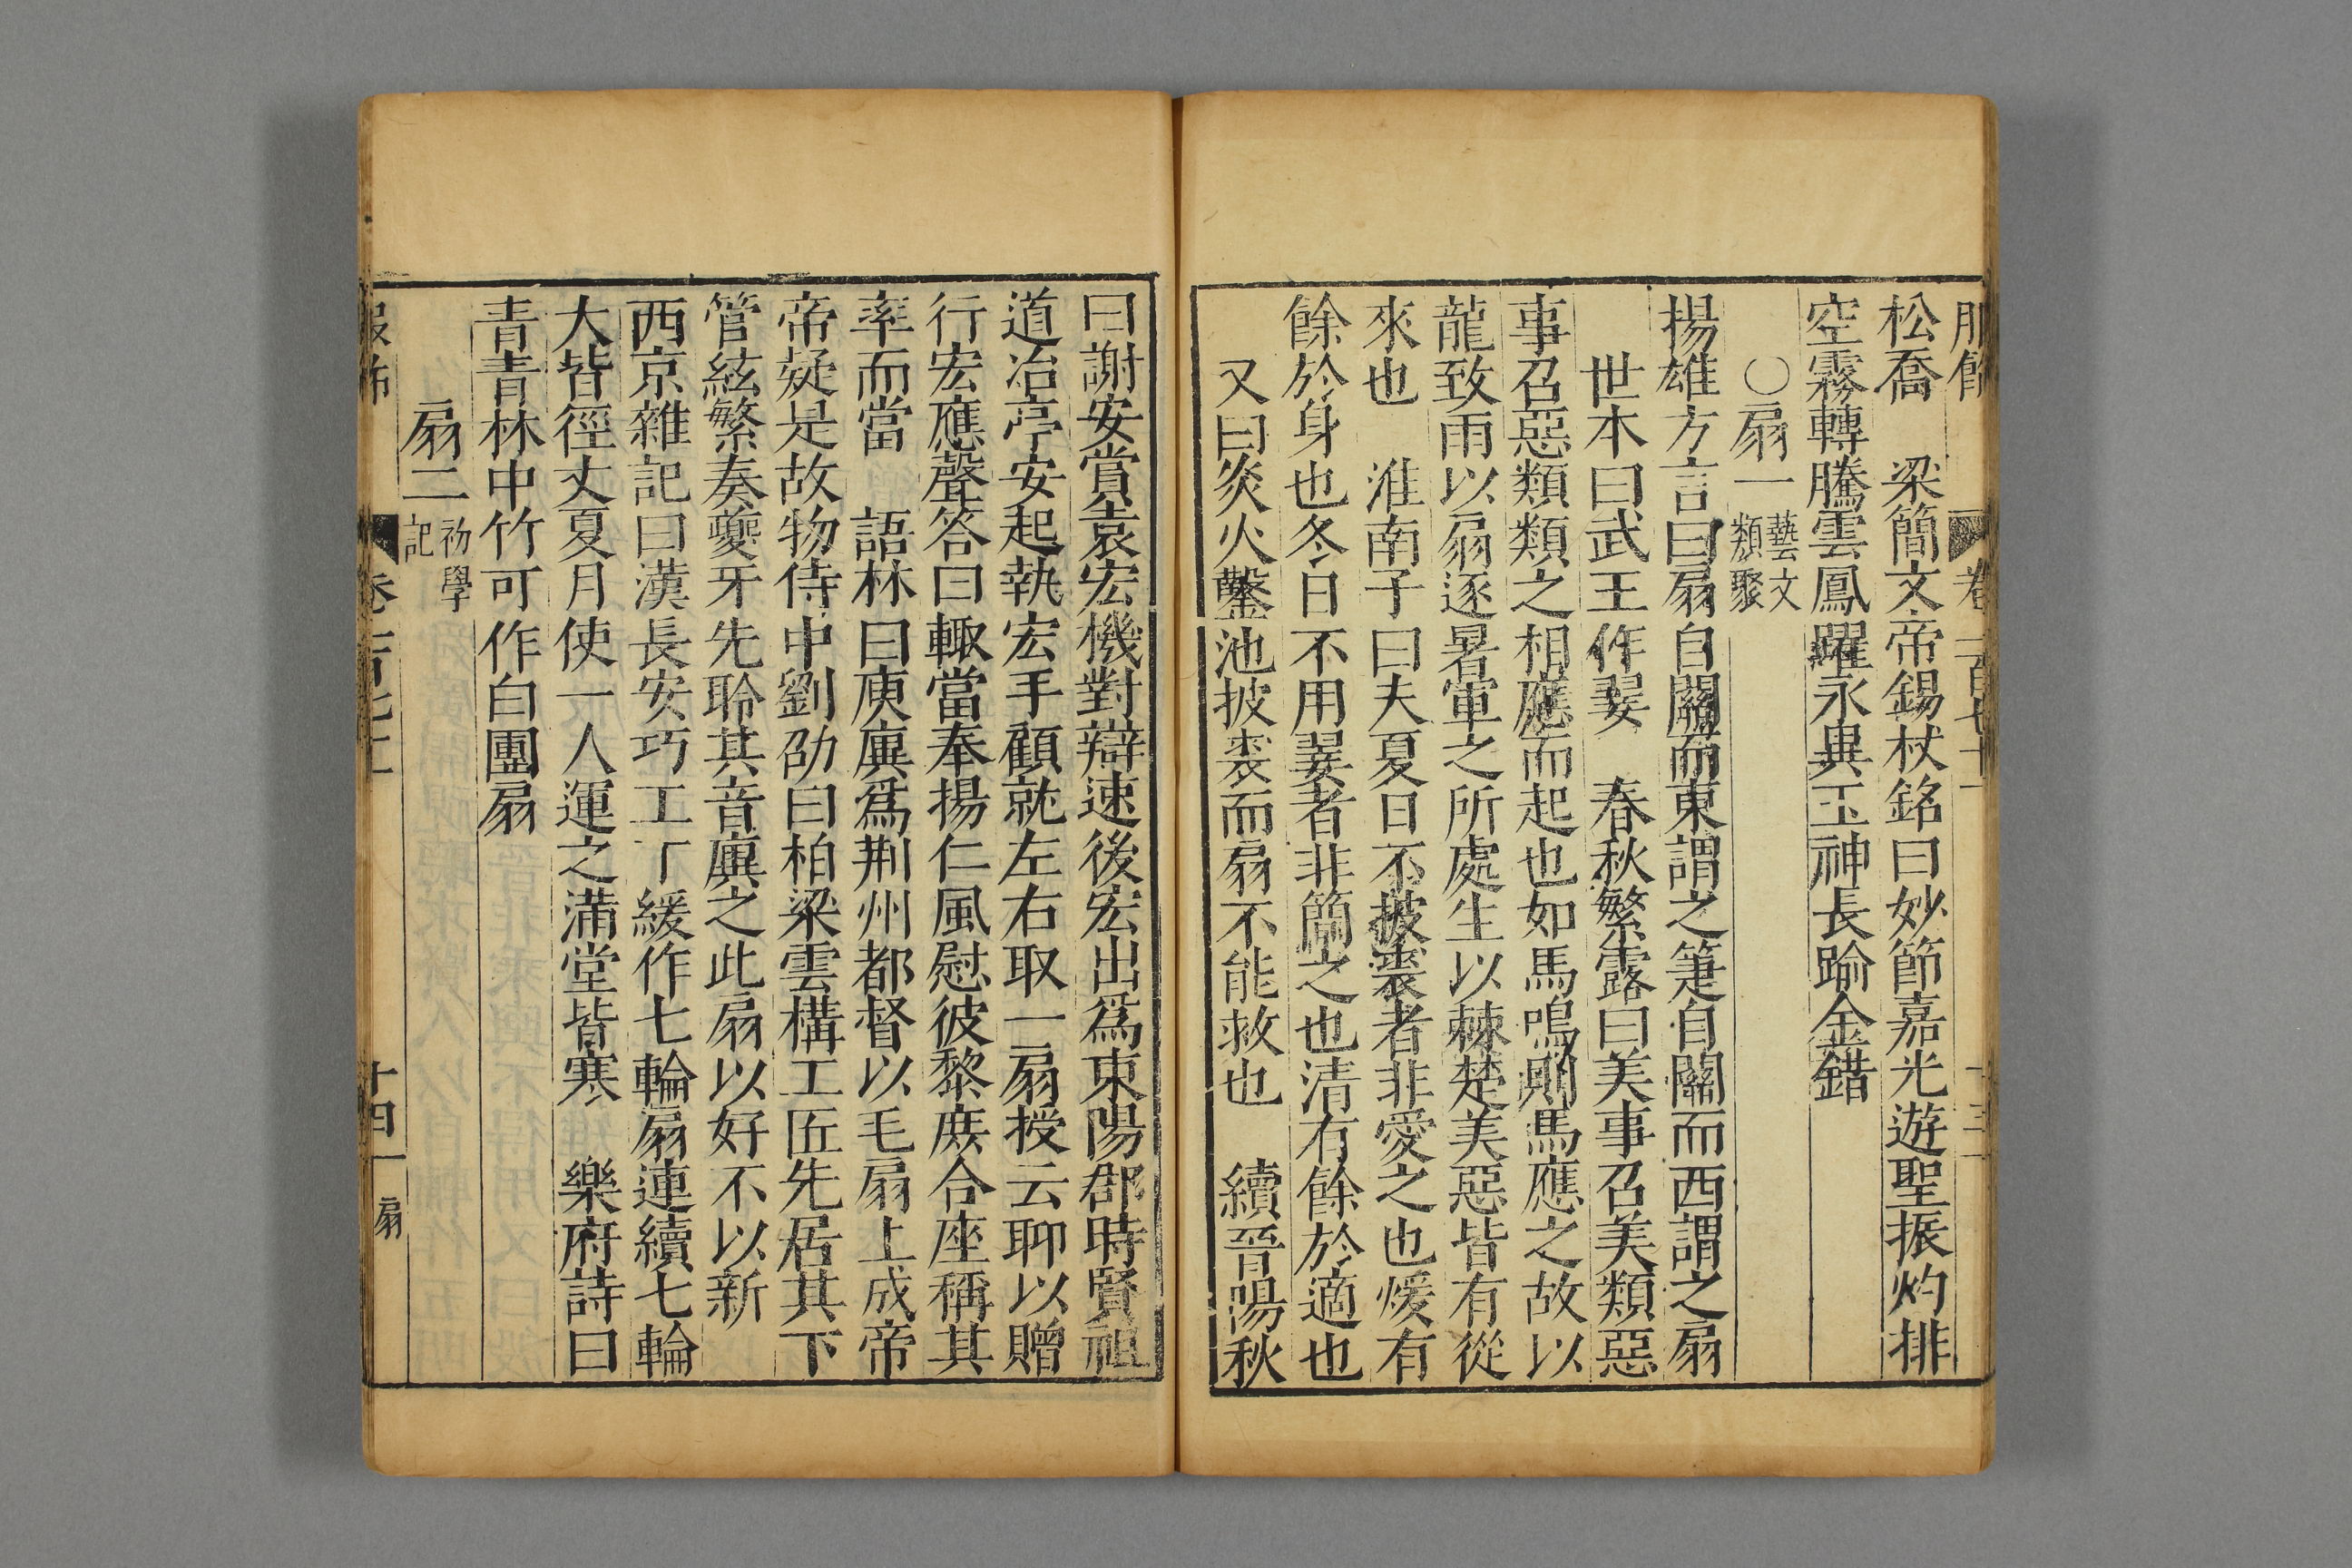 松喬　梁簡文帝錫杖銘曰妙節嘉光遊聖振灼排
空霧轉騰雲鳳躍永異玉神長踰金錯
〇扇一藝文類聚
揚雄方言曰扇自關而東謂之箑自關而西謂之扇
世本曰武王作翣　春秋繁露曰美事召美類惡
事召惡類類之相應而起也如馬鳴則馬應之故以
龍致雨以扇逐暑軍之所處生以棘楚美惡皆有從
來也　淮南子曰夫夏日不披裘者非愛之也煖有
餘於身也冬日不用翣者非簡之也清有餘於適也
又曰炎火鑿池披裘而扇不能救也　續晉陽秋
曰謝安賞袁宏機對辯速後宏出爲東陽郡時賢祖
道冶亭安起執宏手顧就左右取一扇授云聊以贈
行宏應聲答曰輙當奉揚仁風慰彼黎庶合座稱其
率而當　語林曰庾廙爲荆州都督以毛扇上成帝
帝疑是故物侍中劉劭曰柏梁雲構工匠先居其下
管絃繁奏夔牙先聆其音廙之此扇以好不以新
西京雜記曰漢長安巧工丁緩作七輪扇連續七輪
大皆徑丈夏月使一人運之滿堂皆寒　樂府詩曰
青青林中竹可作白團扇
扇二初學記
服飾　卷　十四　扇